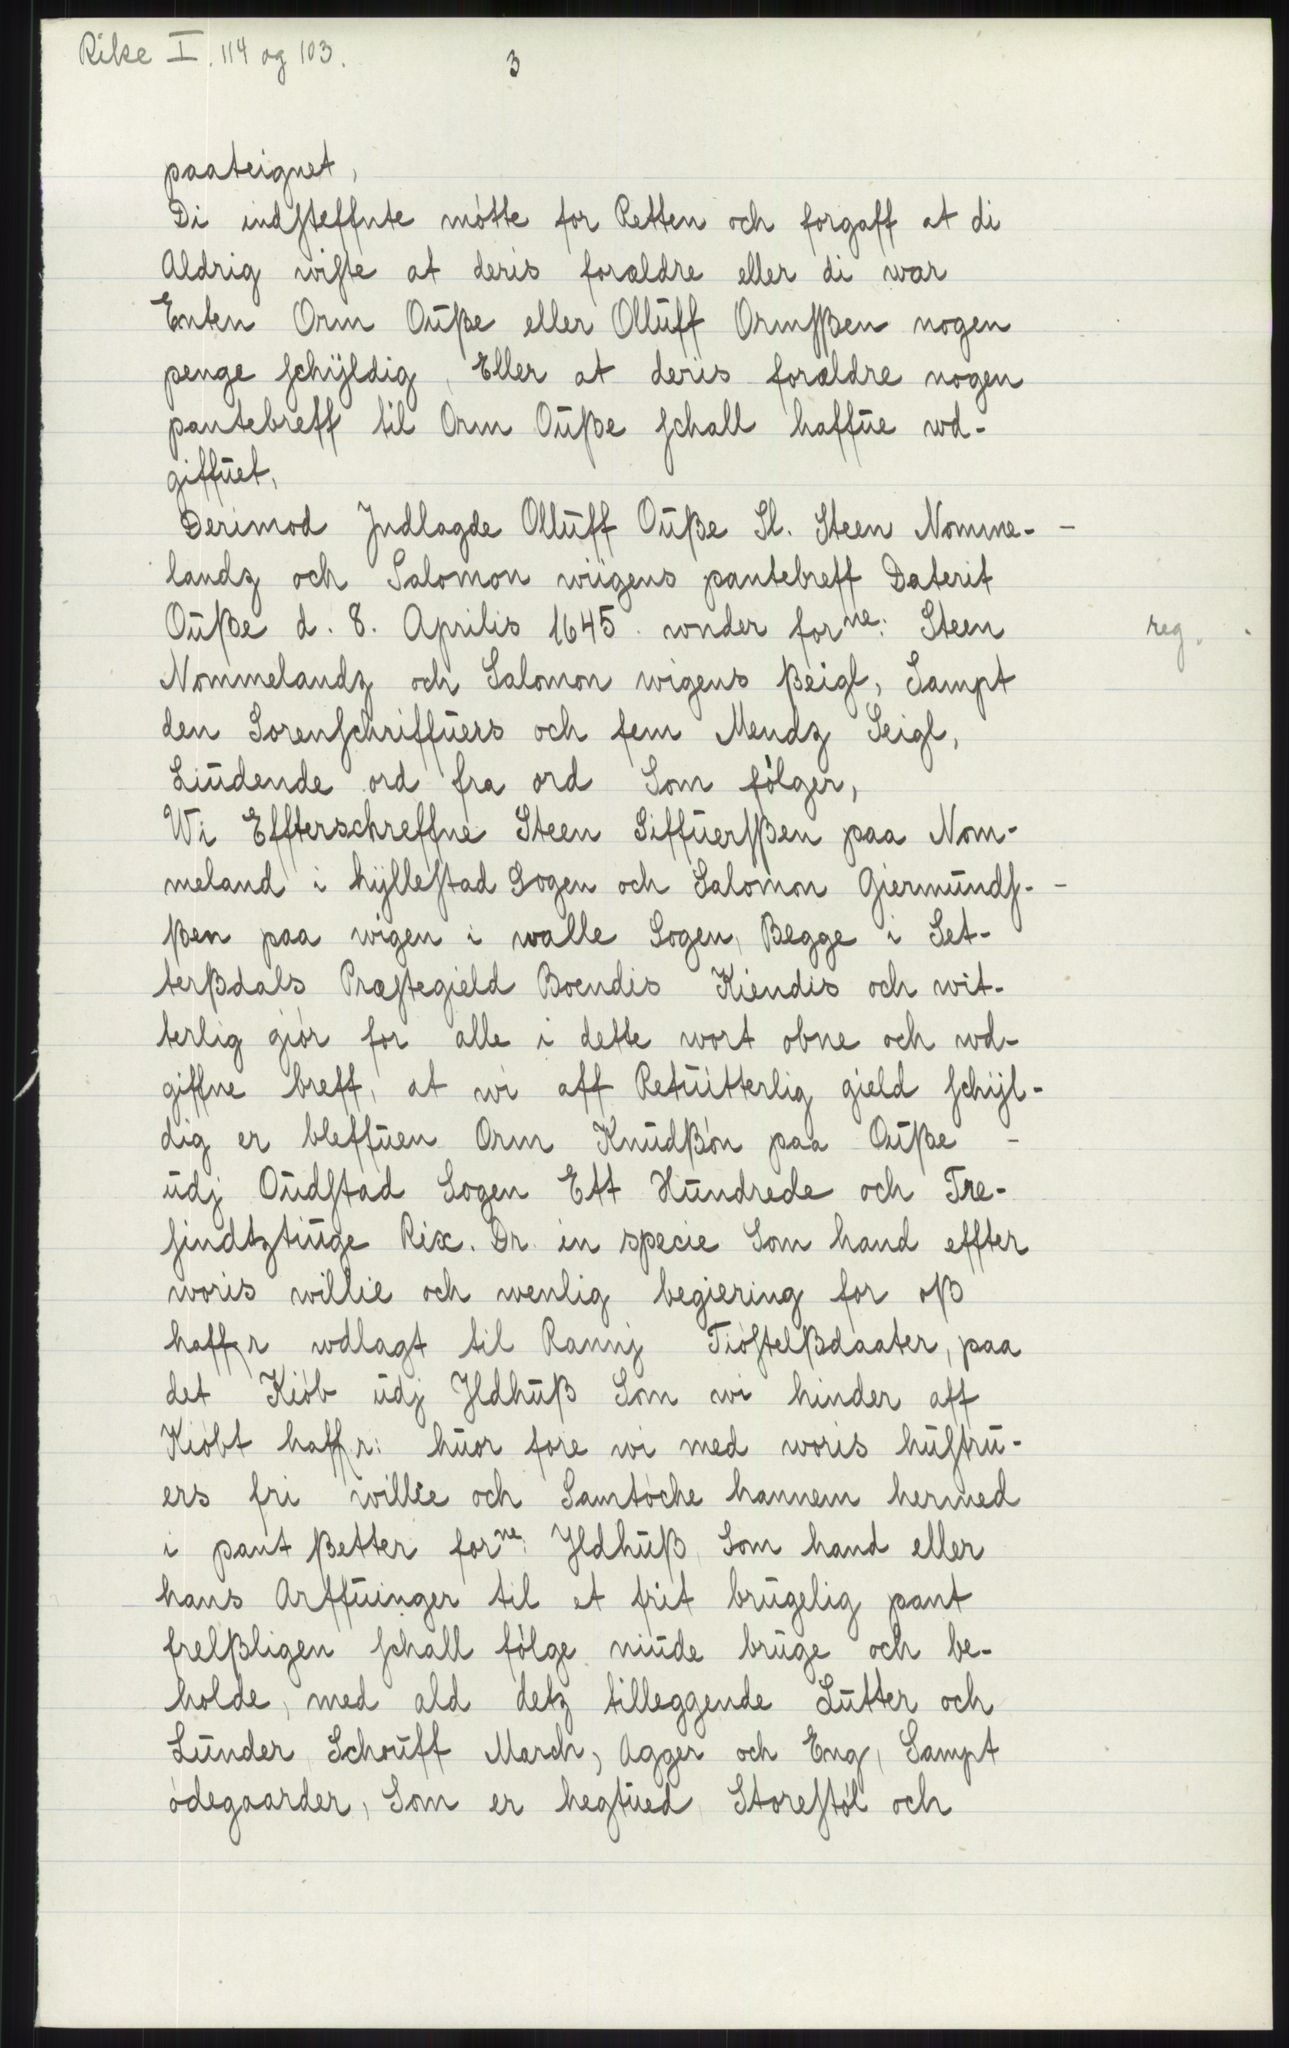 Rike I. 114 og 103.
3
paateignet,
Di indsteffnte møtte for Retten och forgaff at di
Aldrig wiste at deris forældre eller di war
Enten Orm Ouße eller Olluff Ormsßen nogen
penge schyldig, Eller at deris forældre nogen
pantebreff til Orm Ouße schall haffue wd-
giffuet,
Derimod Jndlagde Olluff Ouße Sl. Steen Nomme-
landz och Salomon wiigens pantebreff Daterit
Ouße d. 8. Aprilis 1645 wnder forne: Steen
reg.
Nommelandz och Salomon wigens ßeigl, Sampt
den Sorenschriffuers och fem Mendz Seigl,
Liudende ord fra ord Som følger,
Wi Effterschreffne Steen Siffuersßen paa Nom-
meland i hyllestad Sogen och Salomon Giermunds-
ßen paa wigen i walle Sogen, Begge i Set-
terßdals Præstegield Boendis Kiendis och wit-
terlig giør for alle i dette wort obne och wd-
giffne breff, at wi aff Retuitterlig gield schyl-
dig er bleffuen Orm Knudßøn paa Ouße
udj Oudstad Sogen Ett Hundrede och Tre-
sindtztiuge Rix. Dr. in specie Som hand effter
woris willie och wenlig begiering for oß
haffr wdlagt til Rannj Tiøstelßdaater, paa
det Kiøb udj Jldhuß Som wi hinder aff
Kiøbt haffr: huor fore wi med woris hustru-
ers fri willie och Samtøche hannem hermed
i pant ßetter forne: Jldhuß, Som hand eller
hans Arffuinger til et frit brugelig pant
frelßligen schall følge niude bruge och be-
holde, med ald detz tilleggende Lutter och
Lunder, Schouff March, Agger och Eng, Sampt
ødegaarder, Som er hegtued, Storestøl och